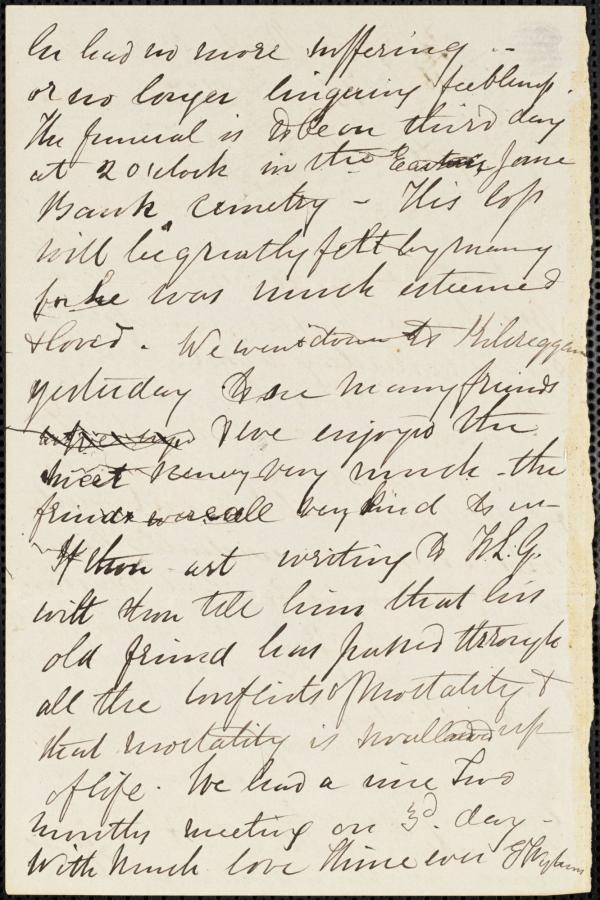 he had no more suffering --
or no longer lingering feebleness.
The funeral is to be on third day
at 2 o'clock in the Eastern Jane
Bank cemetry - His loss
will be greatly felt by many
for he was much esteemed
& loved. We went down to Kilcreggan
yesterday to see many friends
& we enjoyed the
sweet scenery very much - the
friends were all very kind to us -
If thou art writing to W.L.G.
wilt thou tell him that his
old friend has passed through
all the conflicts of mortality &
that mortality is swallowed up
of life. We had a nice Two
months meeting on 3d. day -
With much love thine ever